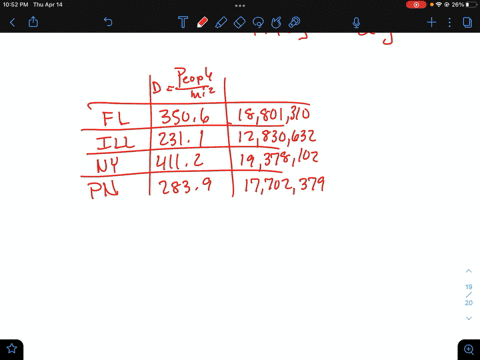 10:52 PM Thu Apr 14
26%
D = People/mi²
FL 350.6 18,801,310
ILL 231.1 12,830,632
NY 411.2 19,378,102
PN 283.9 17,702,379
19
/
20